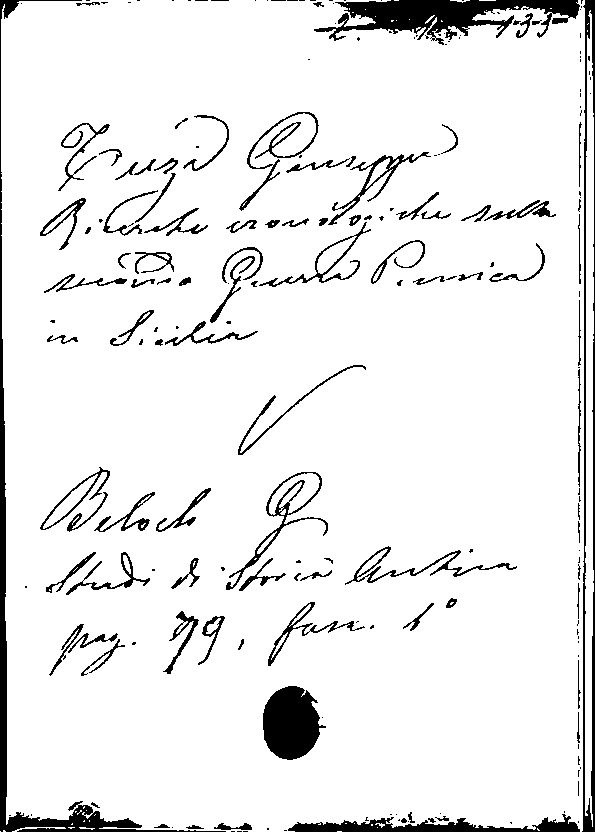 2. 1. 133
Tuzi Giuseppe
Ricerche cronologiche sulla
seconda Guerra Punica
in Sicilia
V
Beloch G
Studi di Storia Antica
pag. 79, fasc. 1°